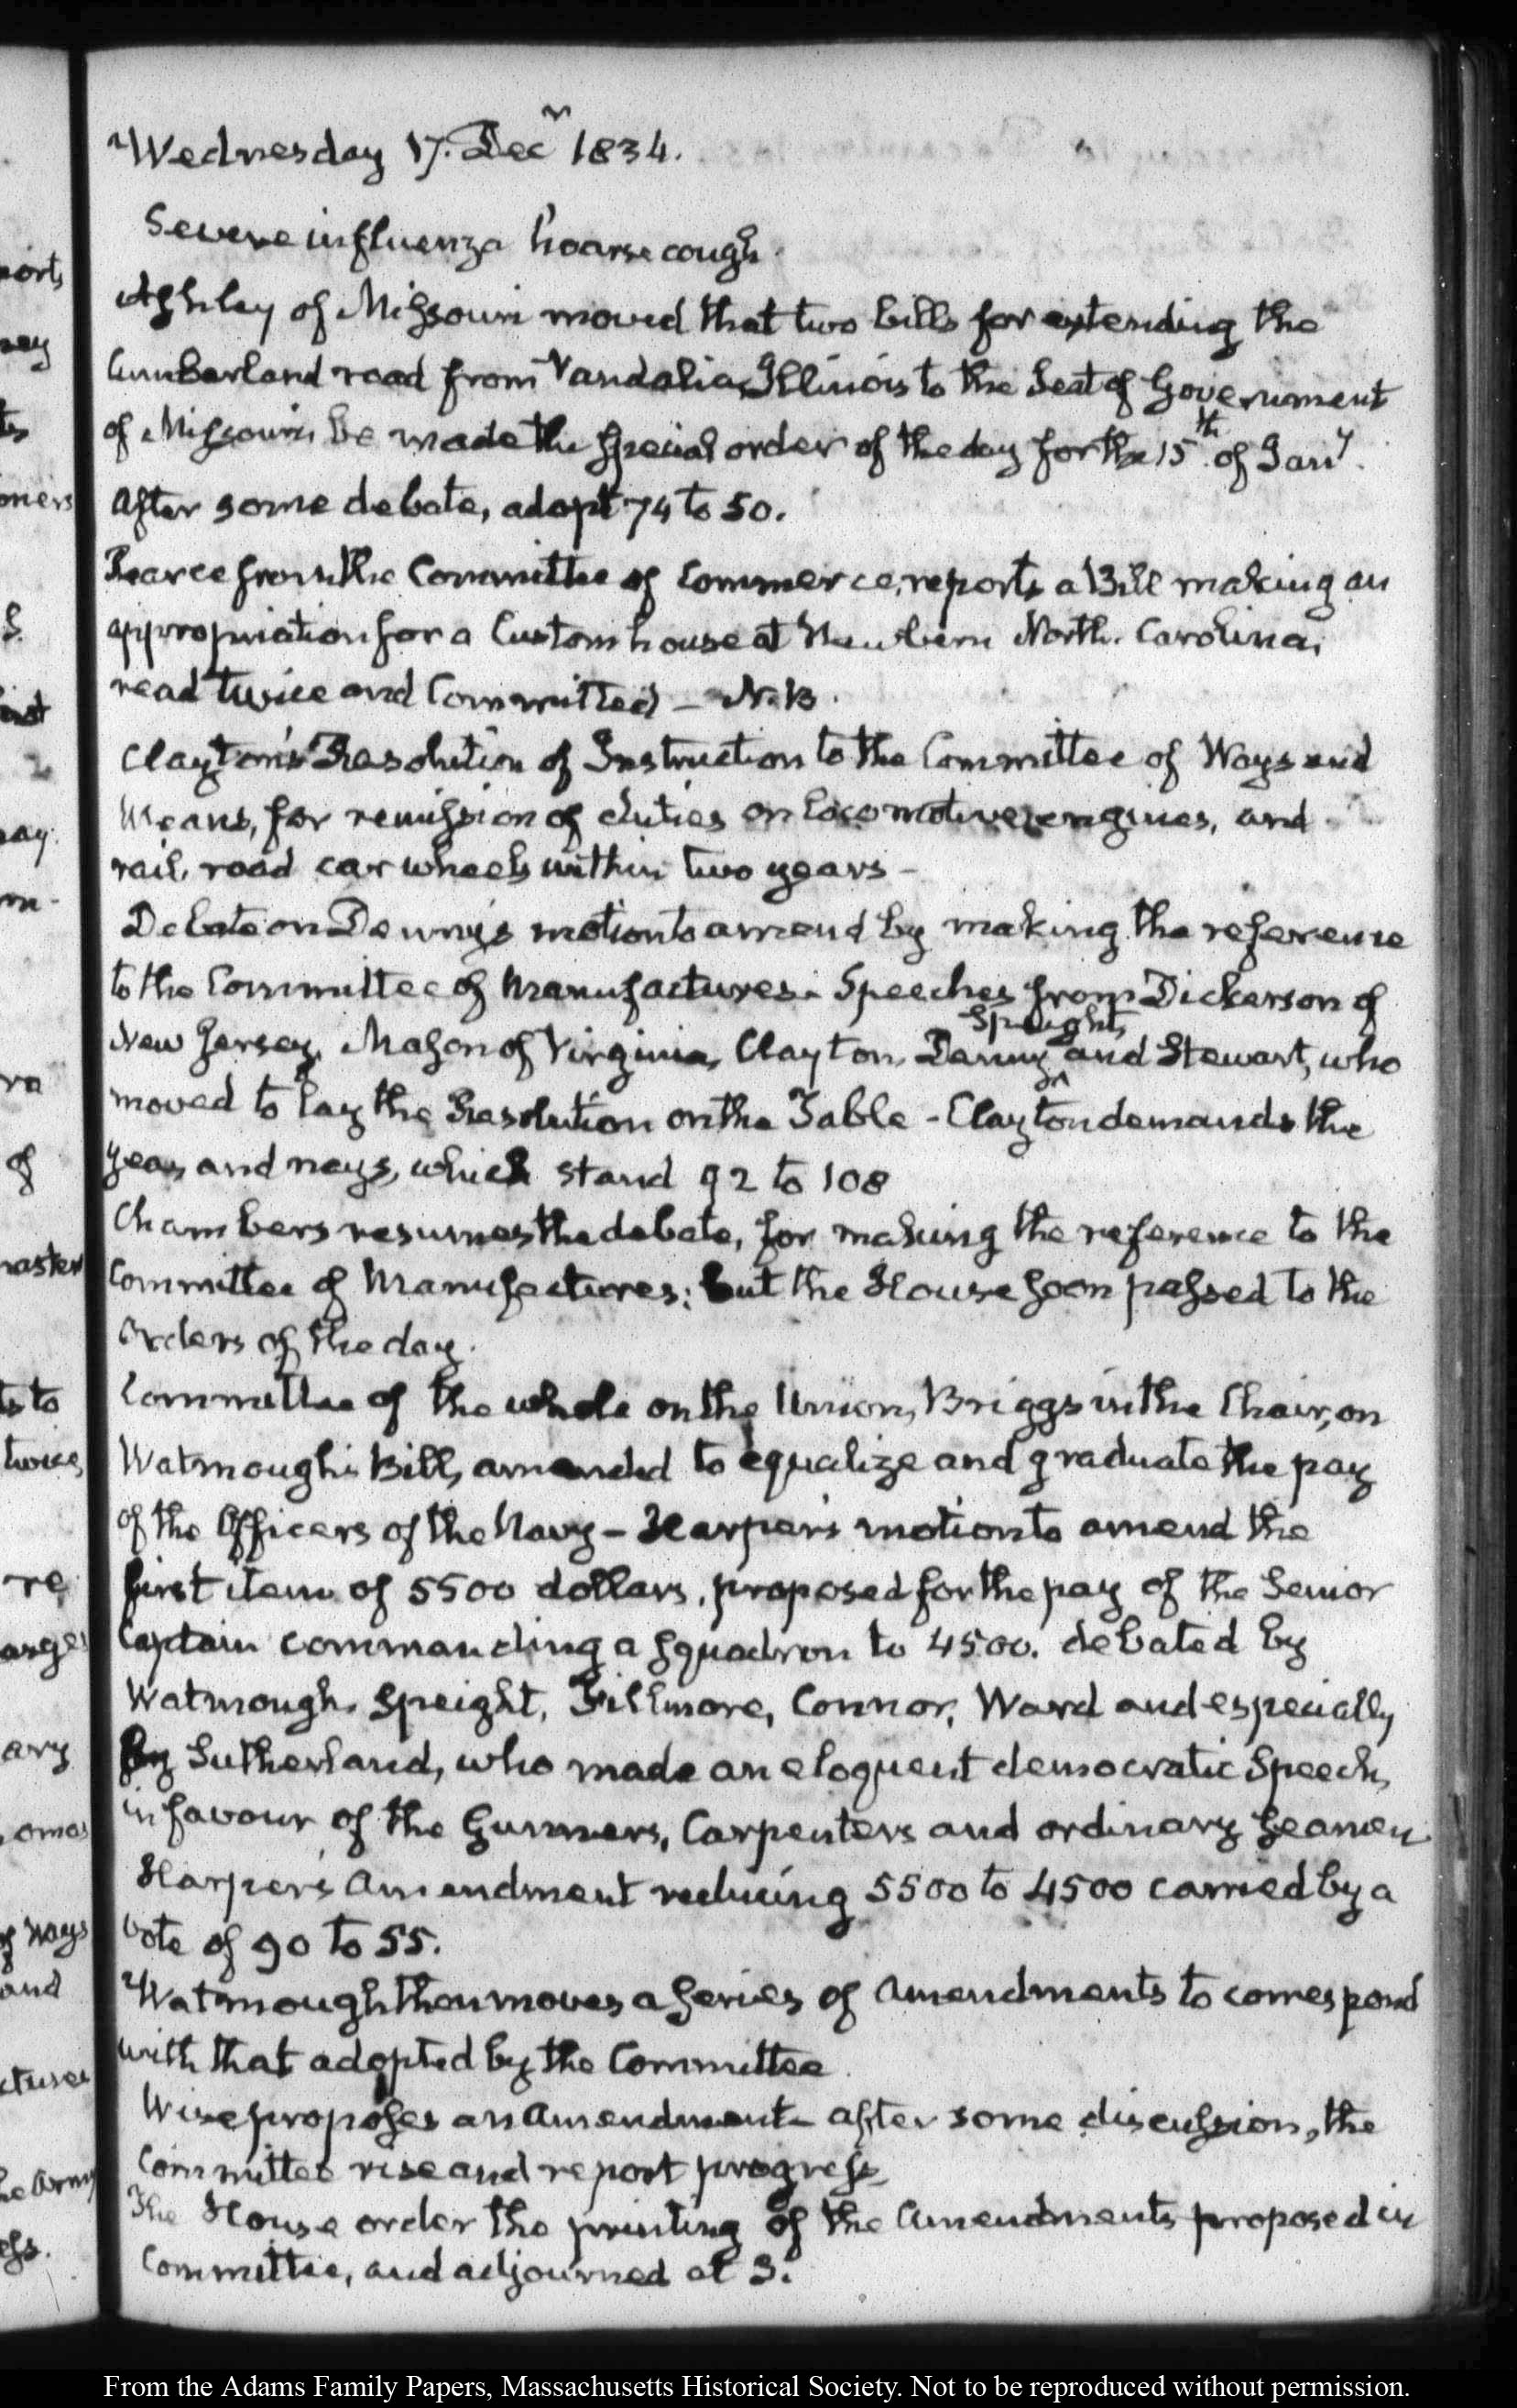 Wednesday 17. Decr 1834.
Severe influenza hoarse cough.
Ashley of Missouri moved that two bills for extending the
Cumberland road from Vandalia, Illinois to the Seat of Government
of Missouri, be made the special order of the day for the 15th. of Jany.
After some debate, adopt 74 to 50.
Pearce from the Committee of Commerce, reports a Bill making an
appropriation for a Custom house at Newbern North. Carolina,
read twice and Committed — N.B.
Clayton's Resolution of Instruction to the Committee of Ways and
Means, for remission of duties on locomotive engines, and
rail, road car wheels within two years —
Debate on Denny's motion to amend by making the reference
to the Committee of Manufactures. Speeches from Dickerson of
Speight,
New Jersey, Mason of Virginia, Clayton, Denny ^ and Stewart, who
moved to lay the Resolution on the Table - Clayton demands the
yeas and nays, which stand 92 to 108
Chambers resumes the debate, for making the reference to the
Committee of Manufactures; but the House soon passed to the
Orders of the day.
Committee of the whole on the Union, Briggs in the Chair, on
Watmough's Bill, amended to equalize and graduate the pay
of the Officers of the Navy — Harper's motion to amend the
first item of 5500 dollars, proposed for the pay of the Senior
Captain commanding a squadron to 4500. debated by
Watmough, Speight, Fillmore, Connor, Ward and especially
by Sutherland, who made an eloquent democratic Speech,
in favour of the Gunners, Carpenters and ordinary Seamen
Harper's Amendment reducing 5500 to 4500 carried by a
vote of 90 to 55.
Watmough then moves a series of Amendments to correspond
with that adopted by the Committee.
Wise proposes an Amendment - after some discussion, the
Committee rise and report progress
The House order the printing of the Amendments proposed in
Committee, and adjourned at 3.
From the Adams Family Papers, Massachusetts Historical Society. Not to be reproduced without permission.